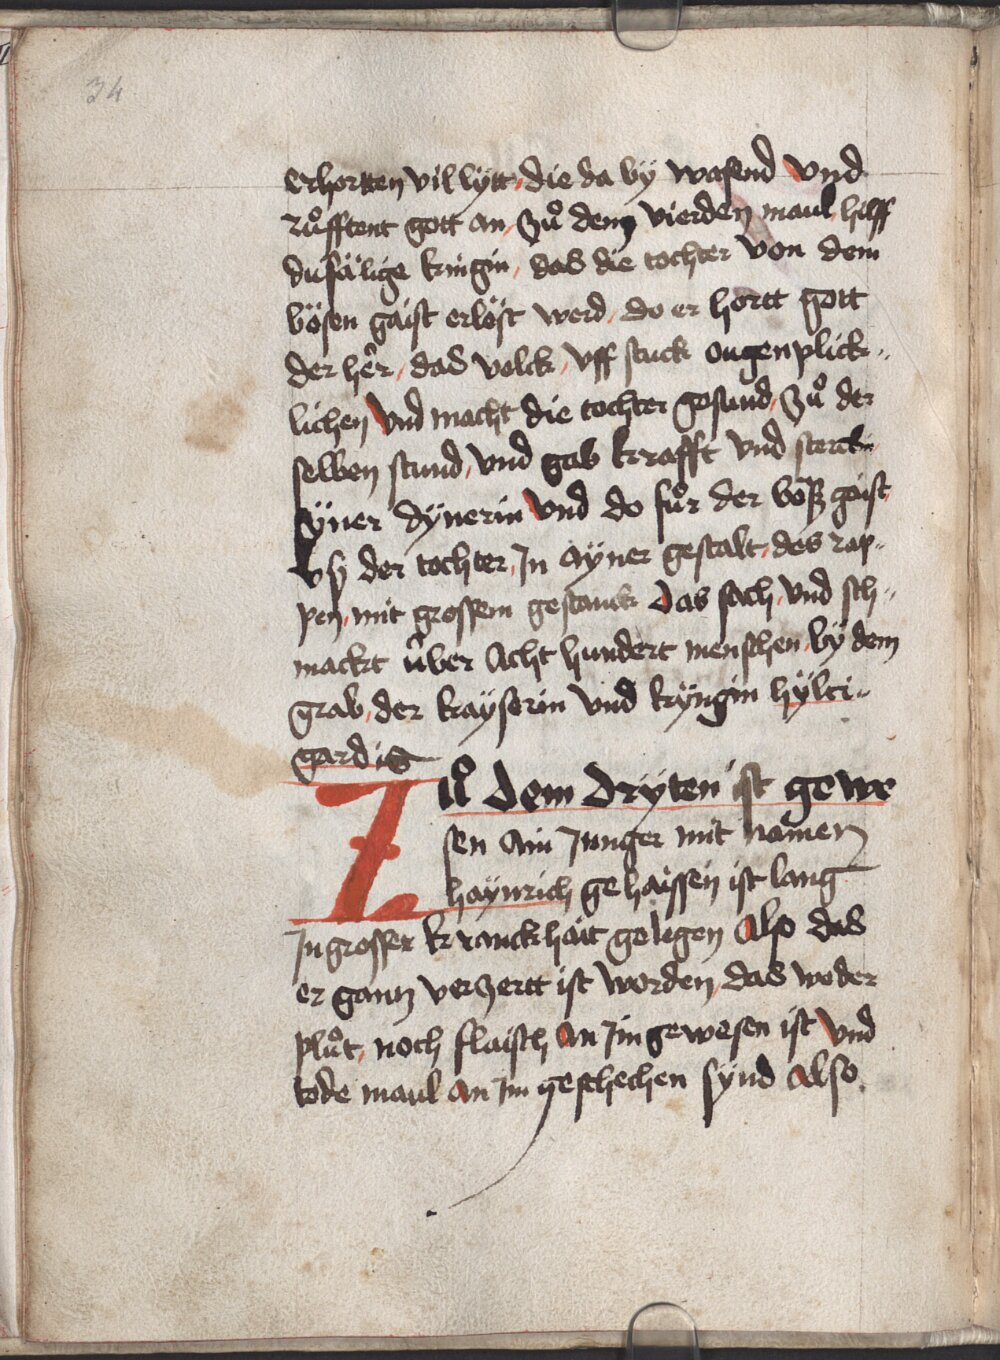 34
erhortten vil lÿtt, die da bÿ wasend Vnd
růfftent gott an, Zů dem vierden maul, hilff
du säˈlige kıngin, das die tochter von dem
bösen gaist erlöst werd, do er hortt gott
der her, das volck, vff stuck ougenplick„
lichen Vnd macht die tochter gesund, Zů der
selben stund, vnd gab krrafft vnd sterck
sÿner dÿnerin Vnd do fůr der böß gaist
vß der tochter, In aÿner gestalt, des rap„
pen, mit grossem gestanck das sach, vnd sch„
mackt v̊ber Acht hundert menschen, bÿ dem
grab, der kaÿserin vnd kryngin hÿlti„
gardis
Zů dem drÿten ist gewe
sen Ain Junger mit namen
haÿnrich gehaissen ist lang
In grosser kranckhait gelegen Also das
er gantz verzertt ist worden, das weder
plůt, noch flaisch An Im gewesen ist Vnd
tode maul an Im geschechen sÿnd Also